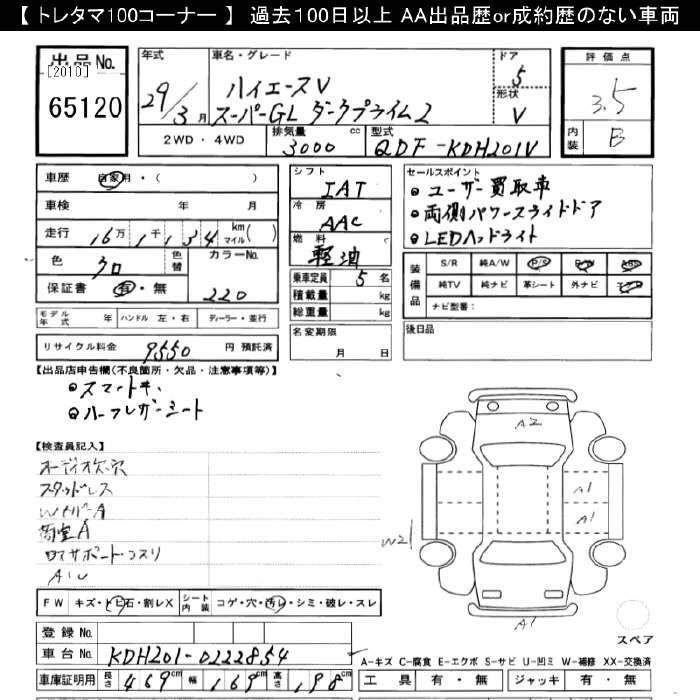 【 トレタマ100コーナー 】 過去100日以上 AA出品歴or成約歴のない車両
出品No.
[2010]
65120
年式
29/3月
車名・グレード
ハイエースV
スーパーGL ダークプライム2
ドア
5
形状
V
2WD・4WD
排気量 3000 cc
型式 QDF-KDH201V
評価点
3.5
内装 B
車歴 自家用・( )
車検 年 月
走行 16万1千134 km マイル( )
色 クロ 色替
カラーNo. 220
保証書 有・無
モデル年式 年 ハンドル 左・右 ディーラー・並行
リサイクル料金 9550 円 預託済
シフト
IAT
冷房
AAC
燃料
軽油
乗車定員 5 名
積載量 kg
総重量 kg
名変期限
月 日
セールスポイント
ユーザー買取車
両側パワースライドドア
LEDヘッドライト
装備品
S/R 純A/W P/S P/W ABS
純TV 純ナビ 革シート 外ナビ エアB
ナビ型番:
後日品
【出品店申告欄(不良箇所・欠品・注意事項等)】
スマートキー
ハーフレザーシート
【検査員記入】
オーディオ欠、穴
スタッドレス
WイパーA
荷室A
ロアサポート・コスリ
A1U
FW キズ・トビ石・割レX
シート内装 コゲ・穴・汚レ・シミ・破レ・スレ
A2
A1
A1
W21
A1
スペア
登録No.
車台No. KDH201-0222854
車庫証明用 長さ 469cm 幅 169cm 高さ 198cm
A-キズ C-腐食 E-エクボ S-サビ U-凹ミ W-補修 XX-交換済
工具 有・無 ジャッキ 有・無